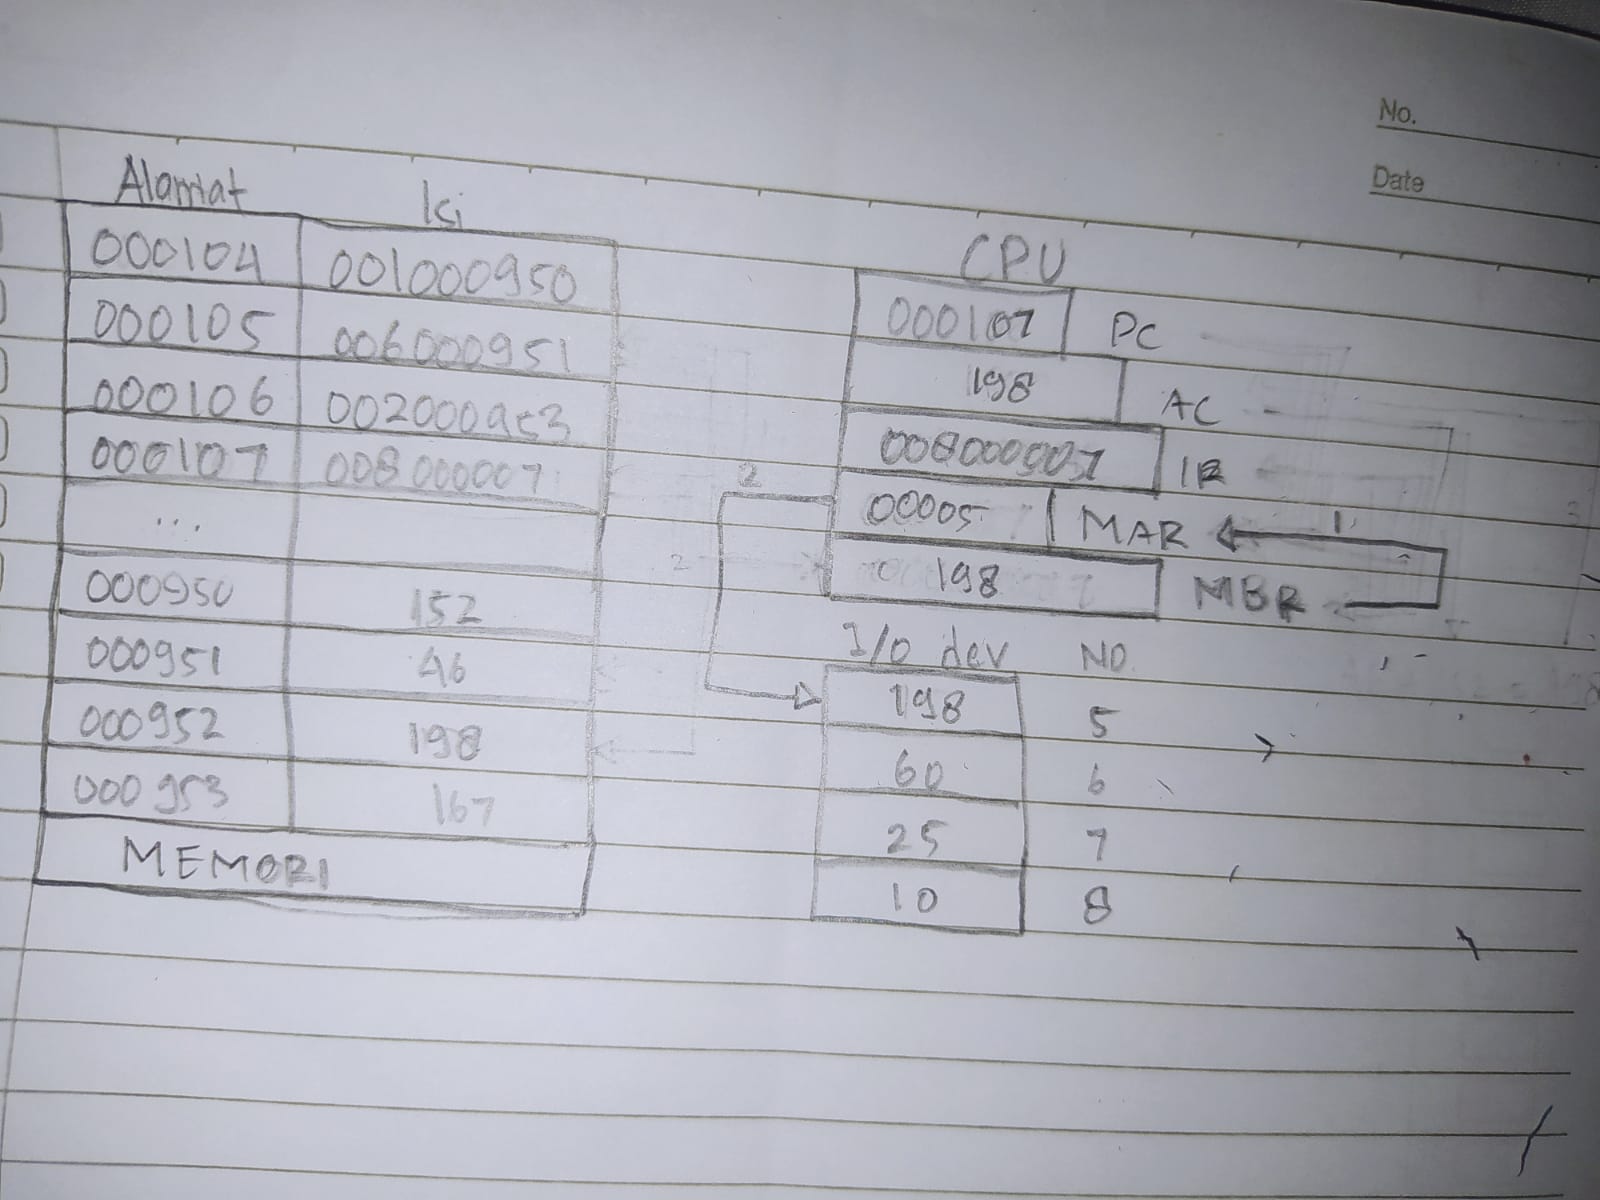 No.
Date
Alamat Isi
000104 001000950
000105 006000951
000106 002000953
000107 008000007
...
000950 152
000951 46
000952 198
000953 167
MEMORI
CPU
000107 PC
198 AC
008000007 IR
00005 MAR 1
198 MBR
2
2
I/O dev NO
198 5
60 6
25 7
10 8